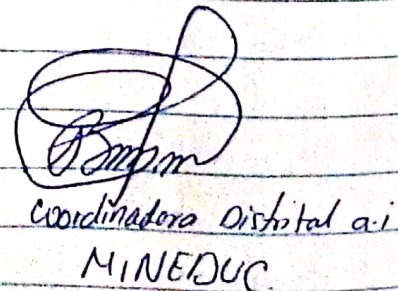 Coordinadora Distrital a.i
MINEDUC